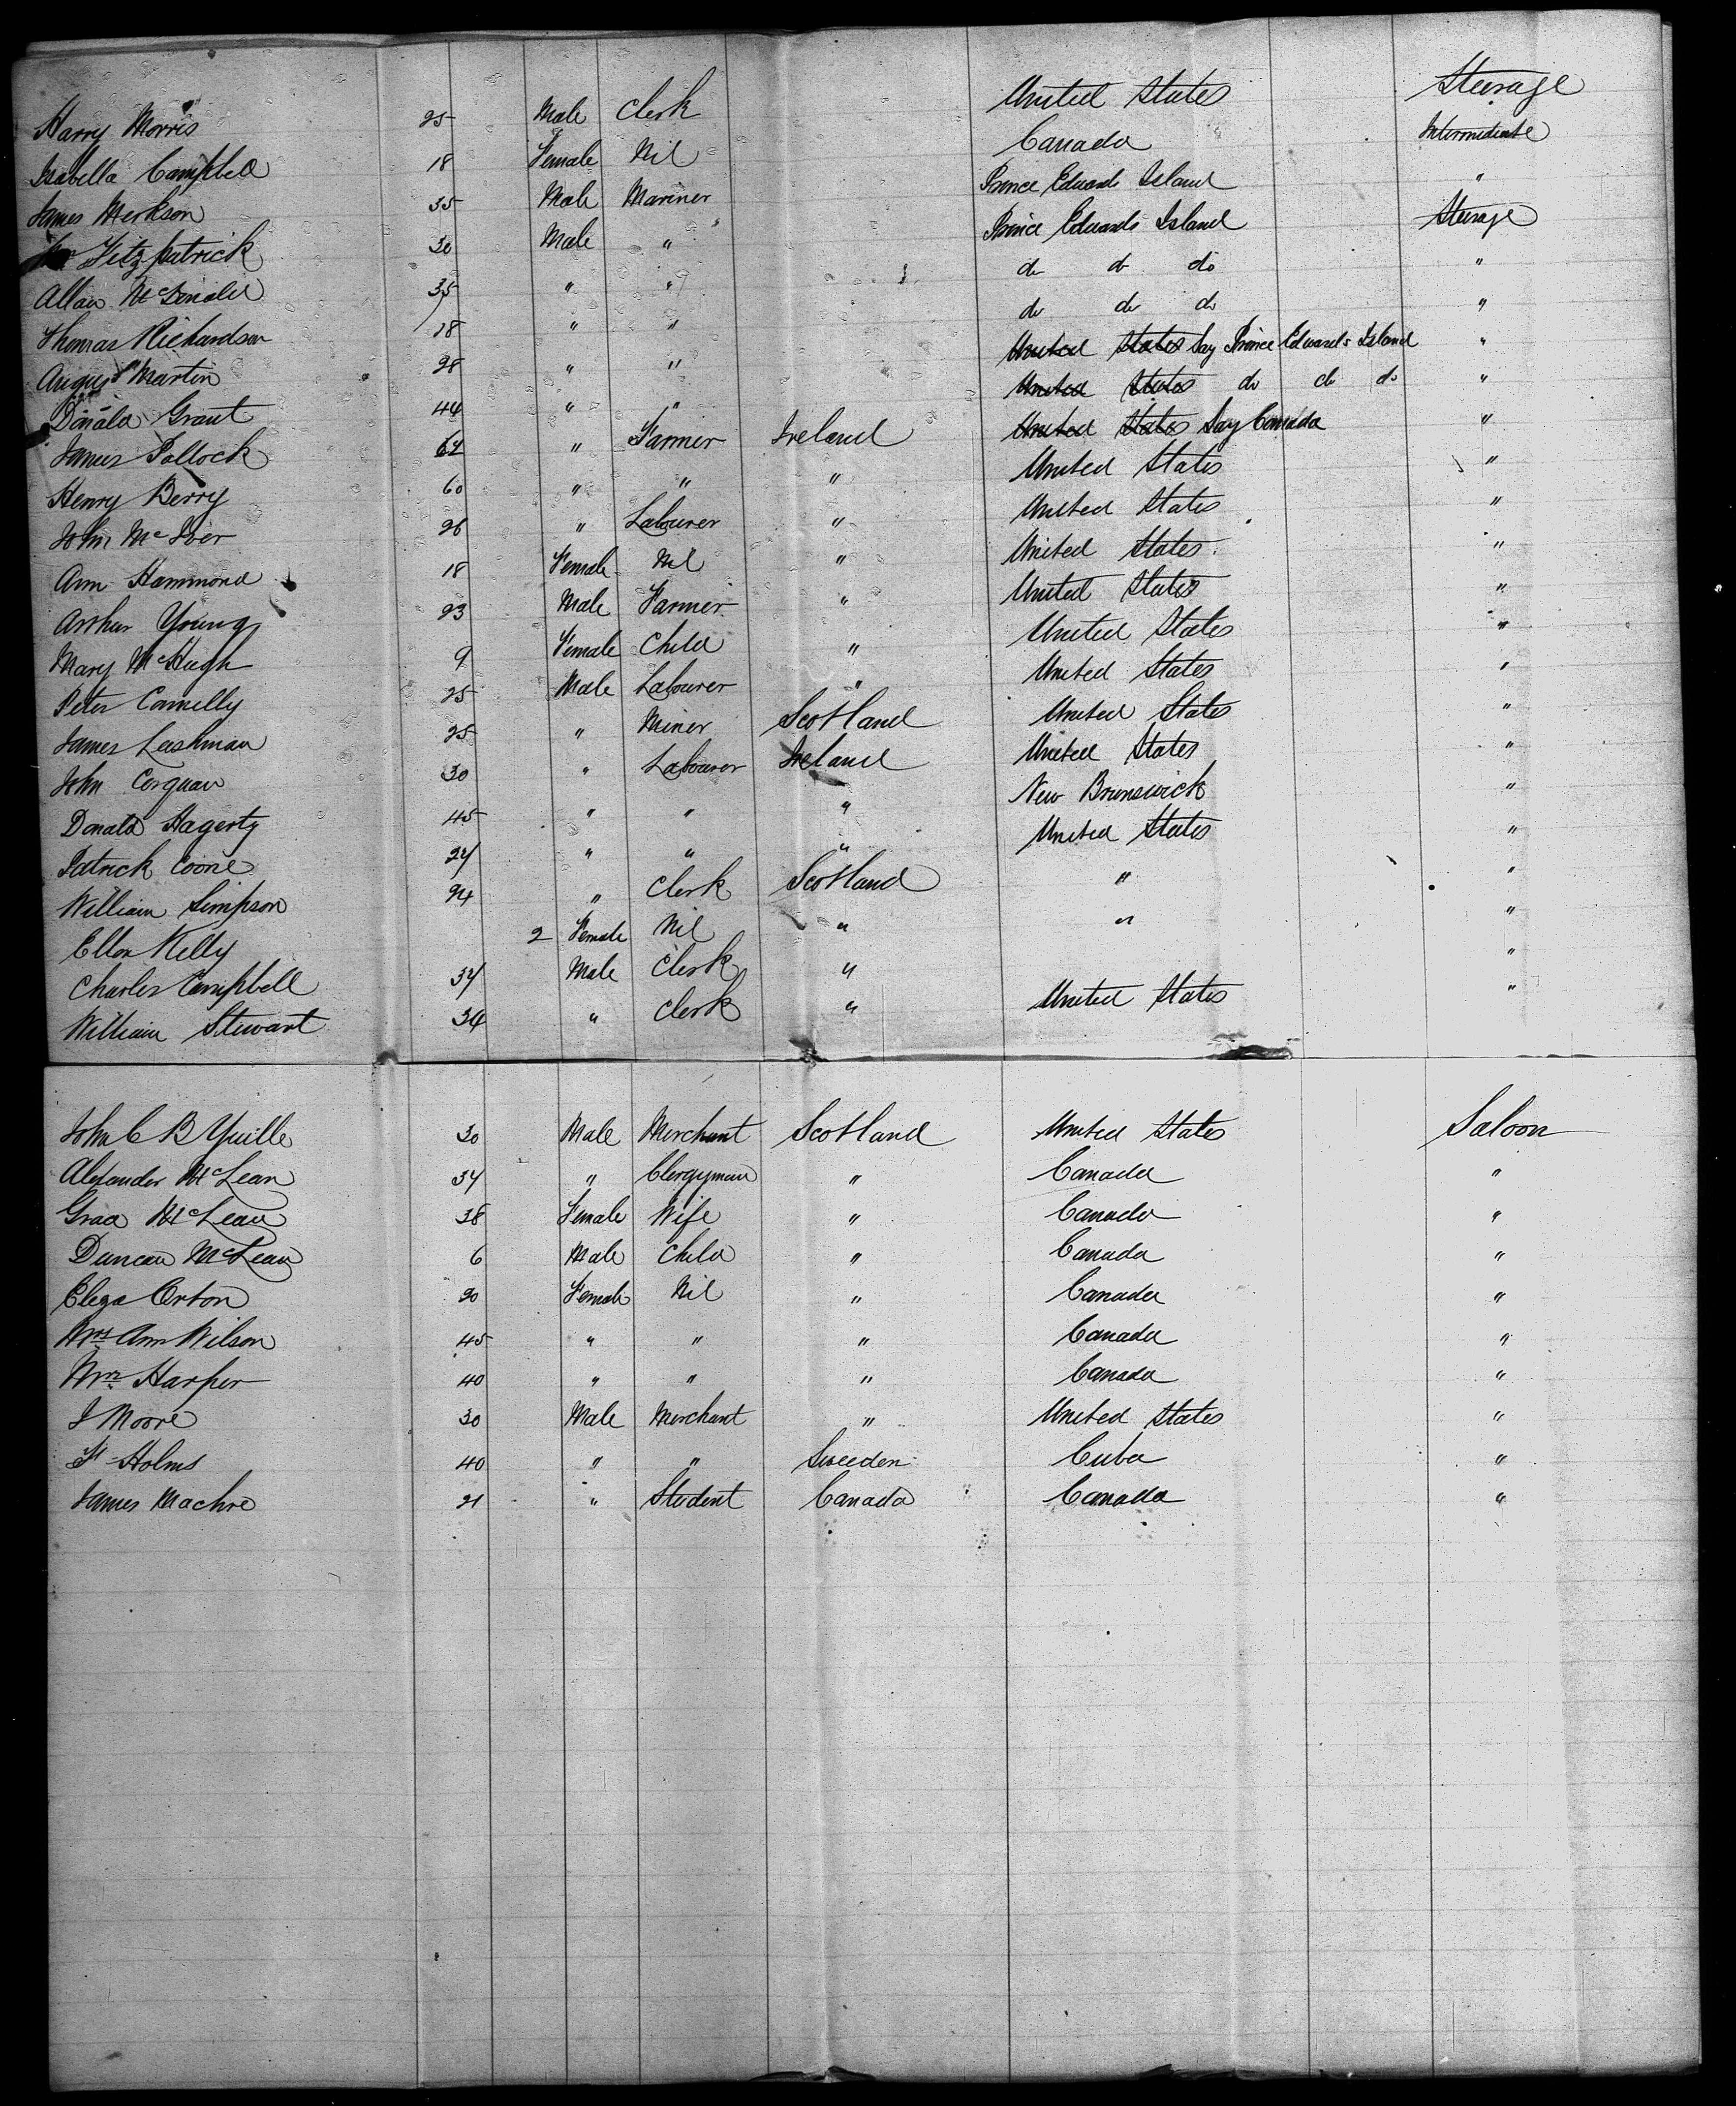 Harry Morris 25 Male Clerk United States Steerage
Isabella Campbell 18 Female Nil Canada Intermediate
James 35 Male Mariner Prince Edwards Island "
Fitzpatrick 30 Male " Prince Edwards Island Steerage
Allan McDonald 35 " " do do do "
Thomas Richardson 28 " " do do do "
Angus Martin 28 " " United States Say Prince Edwards Island "
Donald Grant 44 " " United States do do do "
James Pollock 64 " Farmer Ireland United States Say Canada "
Henry Berry 60 " " " United States "
John McIver 26 " Labourer " United States "
Ann Hammond 18 Female Nil " United States "
Arthur Young 23 Male Farmer " United States "
Mary McHugh 9 Female Child " United States "
Peter Connelly 25 Male Labourer " United States "
James Lashman 25 " Miner Scotland United States "
John 30 " Labourer Ireland United States "
Donald Hagerty 45 " " " New Brunswick "
Patrick 24 " " " United States "
William Simpson 24 " Clerk Scotland " "
Ellen Kelly 2 Female Nil " " "
Charles Campbell 34 Male Clerk " "
William Stewart 34 " Clerk " United States "
John C B Yuille 30 Male Merchant Scotland United States Saloon
Alexander McLean 34 " Clergyman " Canada "
Grace McLean 38 Female Wife " Canada "
Duncan McLean 6 Male Child " Canada "
Eliza Orton 20 Female Nil " Canada "
Mrs Ann Wilson 45 " " " Canada "
Mrs Harper 40 " " " Canada "
J Moore 30 Male Merchant " United States "
Holms 40 " " Sweeden Cuba "
James 21 " Student Canada Canada "